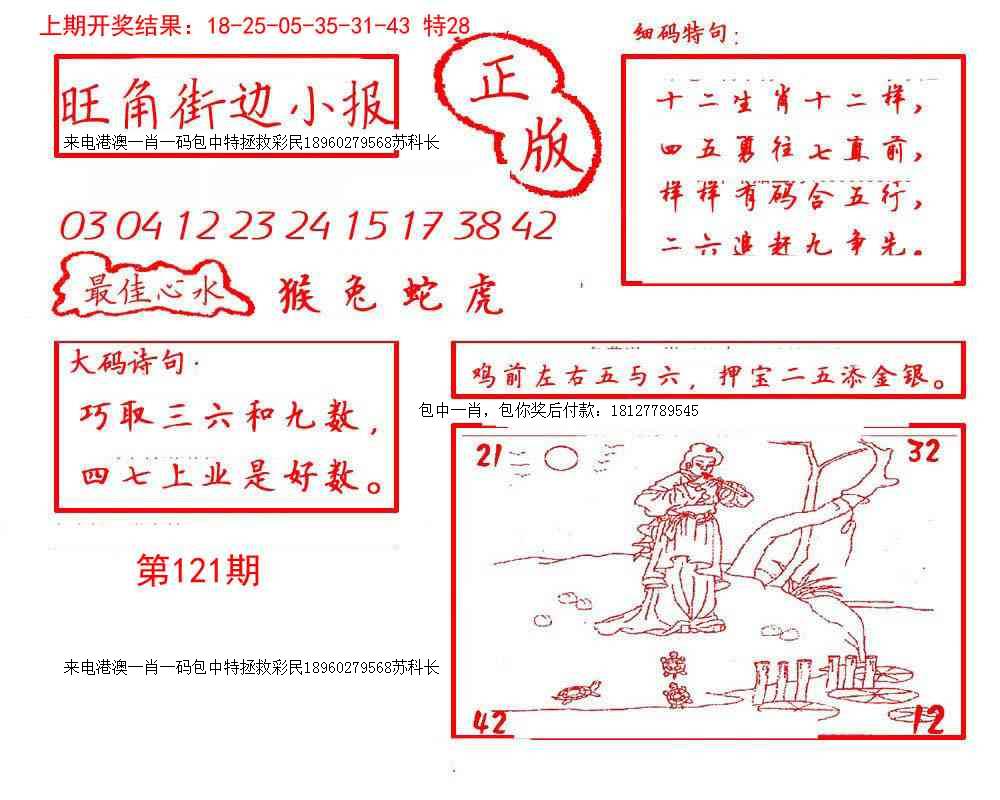 上期开奖结果：18-25-05-35-31-43 特28
旺角街边小报
来电港澳一肖一码包中特拯救彩民18960279568苏科长
正版
细码特句：
十二生肖十二样，
四五勇往七直前，
样样有码合五行，
二六追赶九争先。
03 04 12 23 24 15 17 38 42
最佳心水
猴 兔 蛇 虎
大码诗句·
巧取三六和九数，
四七上业是好数。
鸡前左右五与六，押宝二五添金银。
包中一肖，包你奖后付款：18127789545
21
32
第121期
来电港澳一肖一码包中特拯救彩民18960279568苏科长
42
12